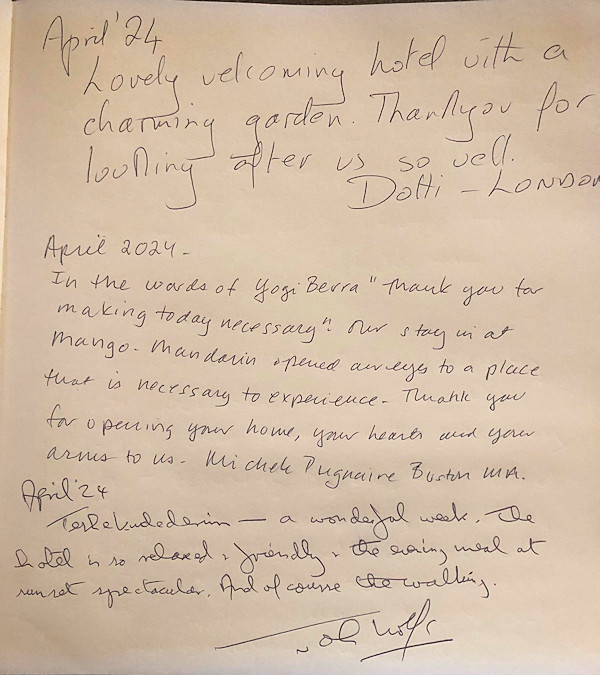 April '24
Lovely welcoming hotel with a
charming garden. Thankyou for
looking after us so well.
Dotti – LONDON
April 2024 –
In the words of Yogi Berra "Thank you for
making today necessary". Our stay in at
Mango - Mandarin opened our eyes to a place
that is necessary to experience - Thank you
for opening your home, your hearts and your
arms to us - Michele Boston MA.
April '24
– a wonderful week. The
hotel is so relaxed & friendly & the evening meal at
sunset spectacular. And of course the walking.